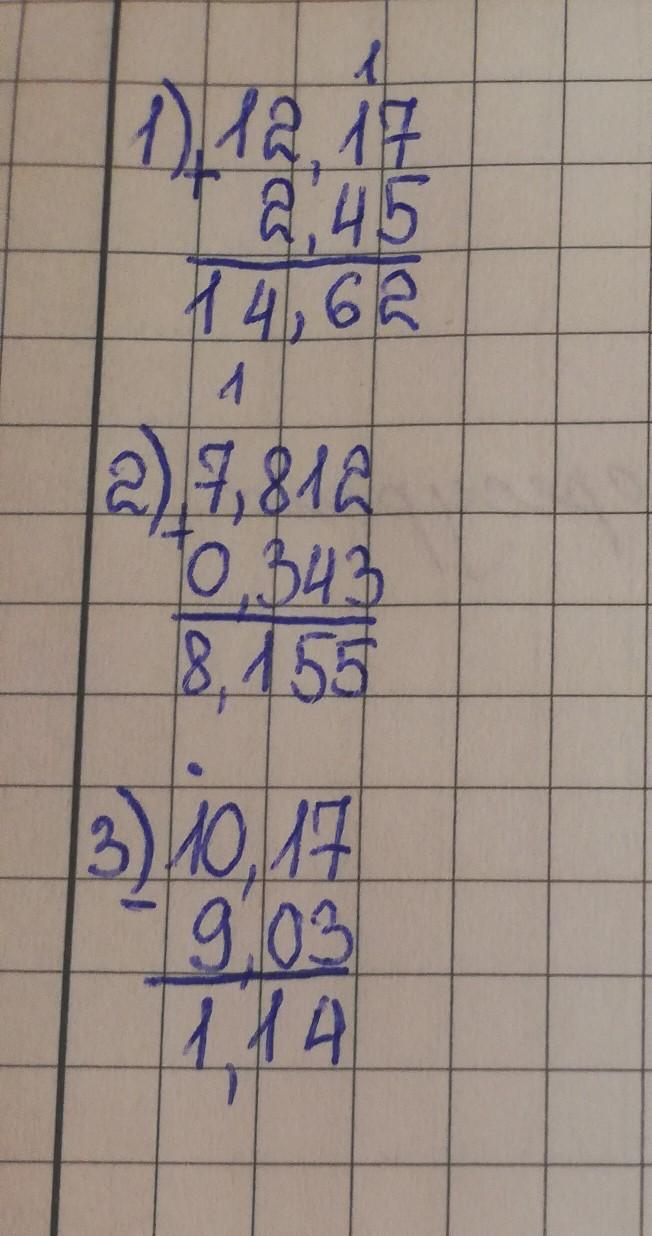 1
1) 12,17
+ 2,45
14,62
1
2) 7,812
+ 0,343
8,155
.
3) 10,17
- 9,03
1,14